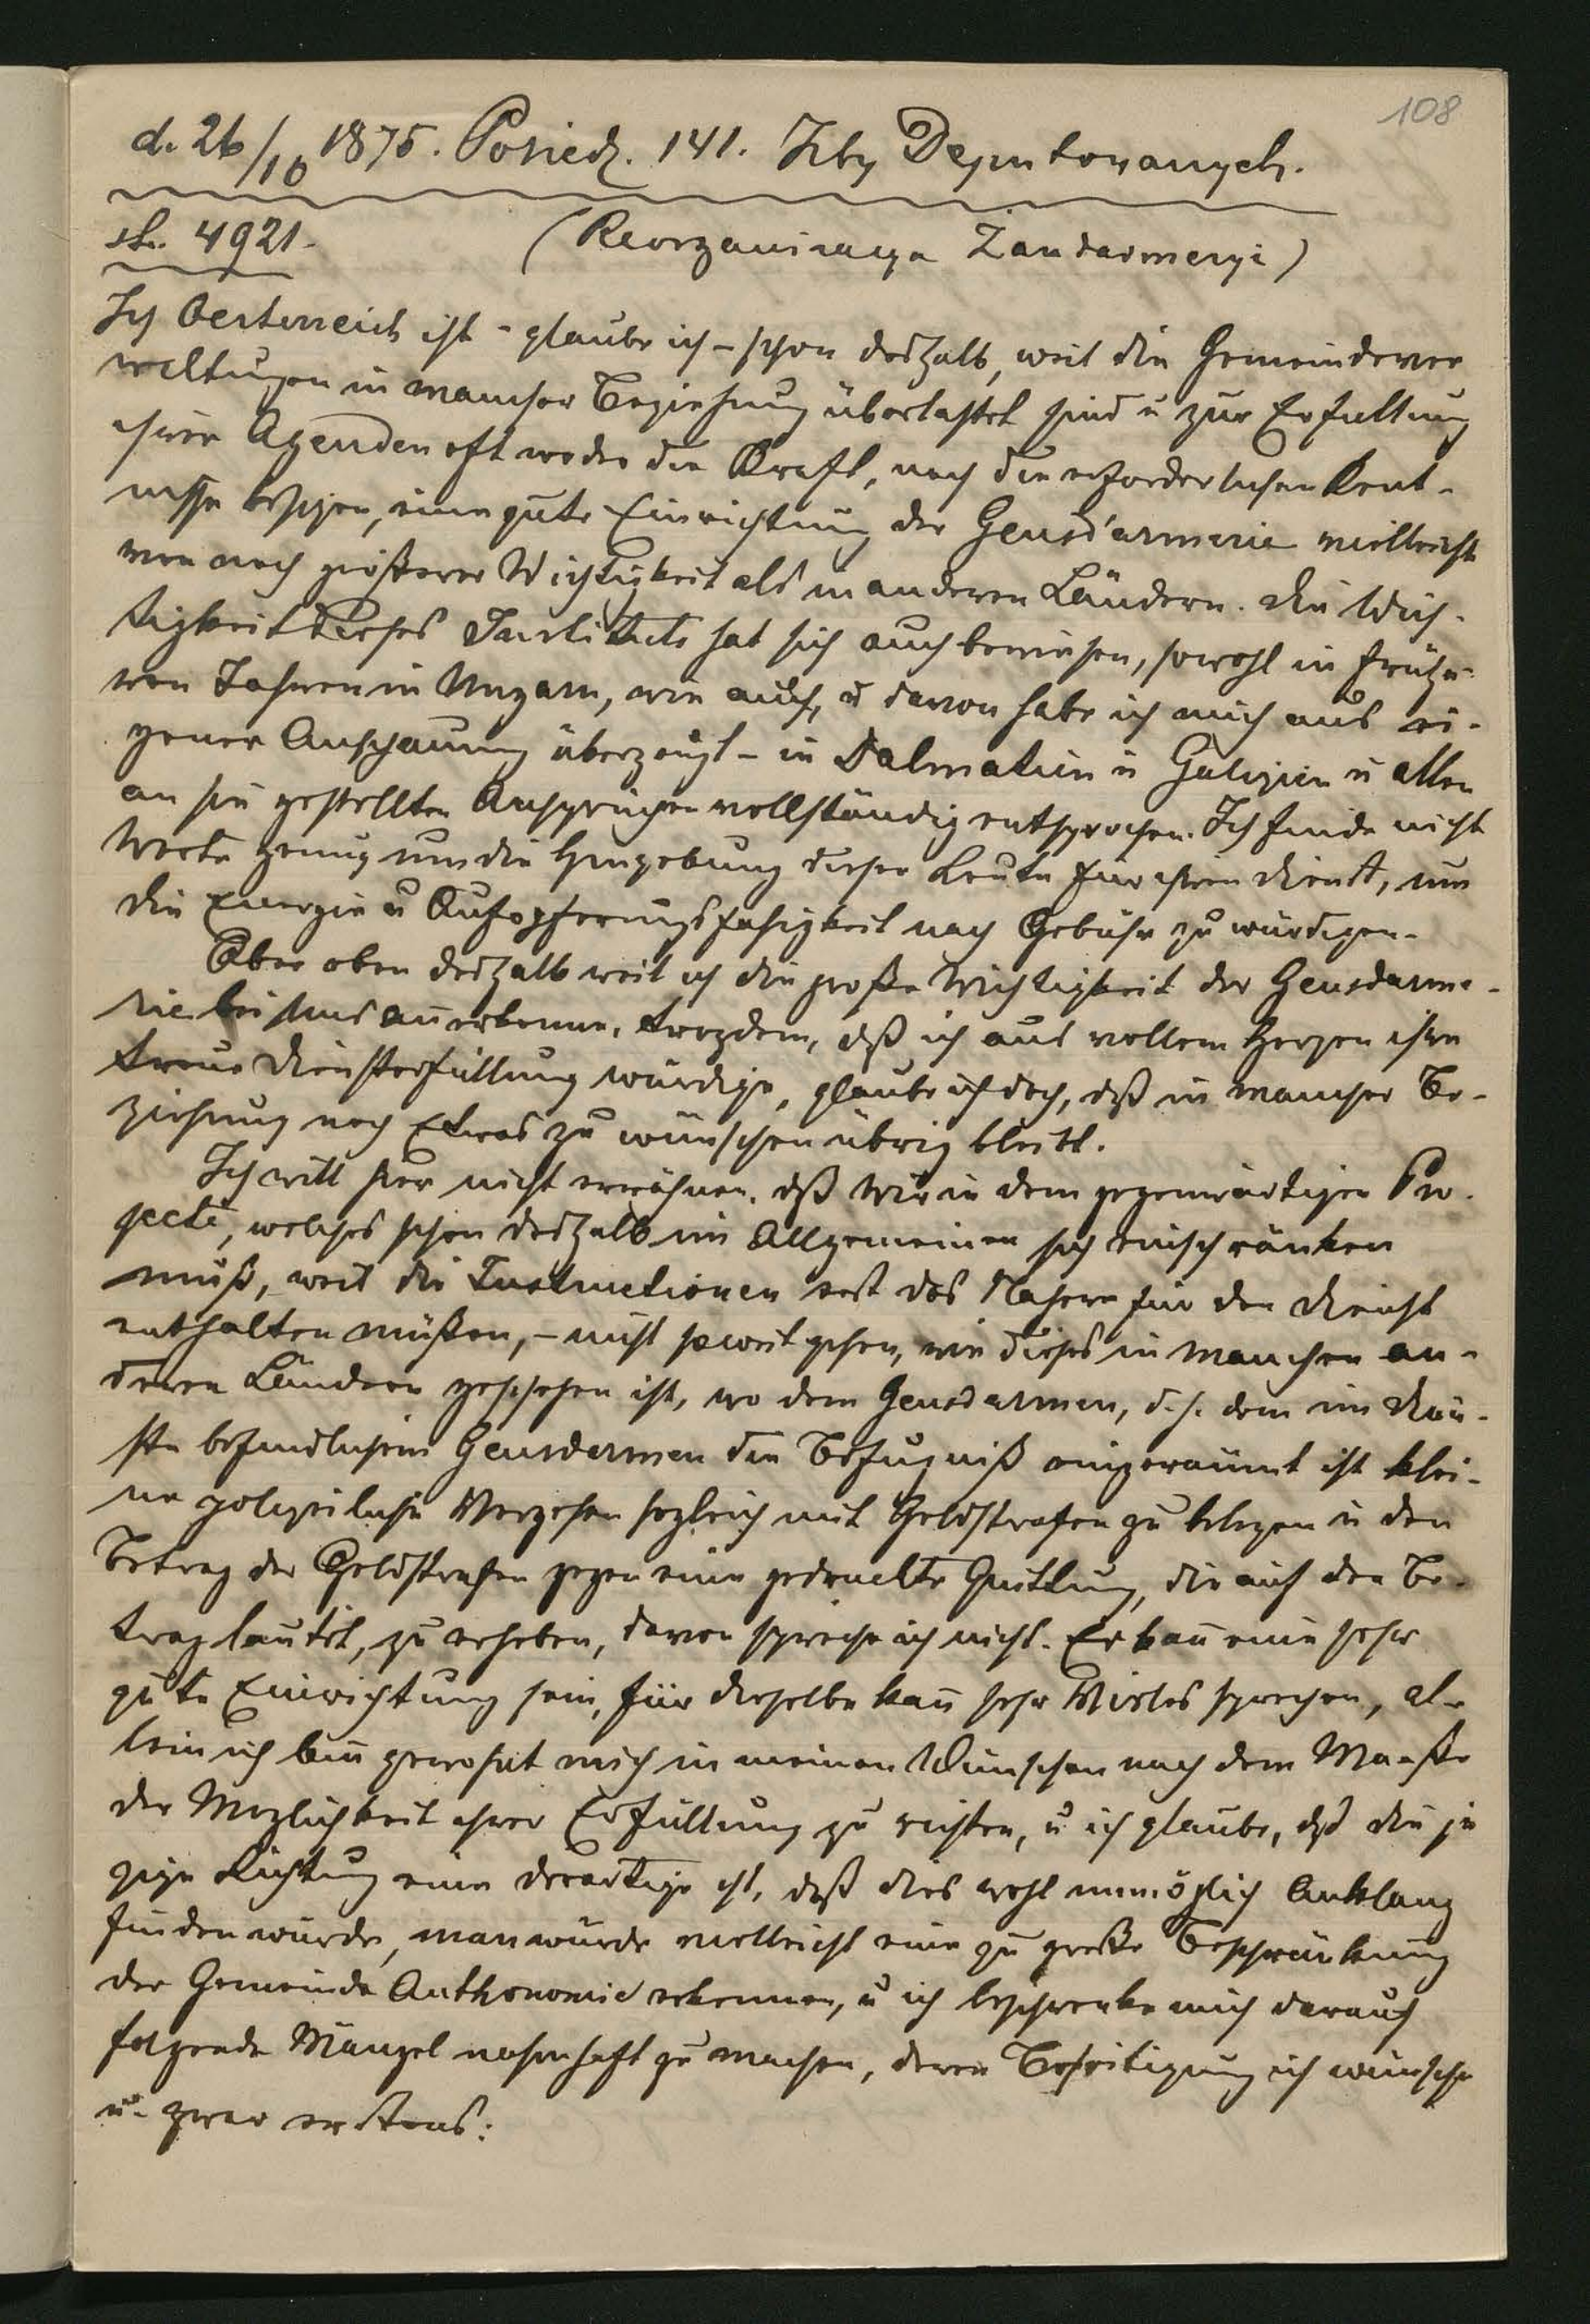 108
d. 26/10 1875. Posiedz. 141. Izby Deputowanych.
st. 4921. (Reorganizacya Żandarmeryi)
In Oesterreich ist - glaube ich - schon deshalb, weil die Gemeindever
waltungen in mancher Beziehung überlastet sind u zur Erfüllung
ihrer Agenden oft weder die Kraft, noch die erforderlichen Kent-
nisse besizen, eine gute Einrichtung der Gensd'armerie vielleicht
von noch größerer Wichtigkeit als in anderen Ländern. Die Wich-
tigkeit dieses Instituts hat sich auch bewiesen, sowohl in frühe-
ren Jahren in Ungarn, wie auch, u davon habe ich mich aus ei-
gener Anschauung überzeugt - in Dalmatien u Galizien u allen
an sie gestellten Ansprüchen vollständig entsprochen. Ich finde nicht
Worte genug um die Hingebung dieser Leute für ihren Dienst, um
die Energie u Aufopferungsfähigkeit nach Gebühr zu würdigen.
Aber eben deshalb weil ich die große Wichtigkeit der Gensdarme-
rie bei uns anerkenne, trozdem, daß ich aus vollem Herzen ihre
treue Diensterfüllung würdige, glaube ich doch, daß in mancher Be-
ziehung noch Etwas zu wünschen übrig bleibt.
Ich will hier nicht erwähnen, daß wir in dem gegenwärtigen Pro-
jecte, welches schon deshalb im Allgemeinen sich einschränken
muß, weil die Instructionen erst das Nähere für den Dienst
enthalten müßen, - nicht so weit gehen, wie dieses in manchen an-
deren Ländern geschehen ist, wo dem Gensdarmen, d. h. dem im Dien-
ste befindlichen Gensdarmen die Befugniß eingeräumt ist klei-
ne polizeiliche Vergehen sogleich mit Geldstrafen zu belegen u den
Betrag der Geldstrafen gegen eine gedruckte Quittung, die auf den Be-
trag lautet, zu erheben, davon spreche ich nicht. Er kan̄ eine sehr
gute Einrichtung sein, für dieselbe kan̄ sehr Vieles sprechen, al-
lein ich bin gewohnt mich in meinen Wünschen nach dem Maaße
der Möglichkeit ihrer Erfüllung zu richten, u ich glaube, daß die je
zige Richtung eine derartige ist, daß dies wohl unmöglich Anklang
finden würde, man würde vielleicht eine zu große Beschränkung
der Gemeinde Authonomie erkennen, u ich beschrenke mich darauf
folgende Mängel nahmhaft zu machen, deren Beseitigung ich wünsche
u. zwar erstens: